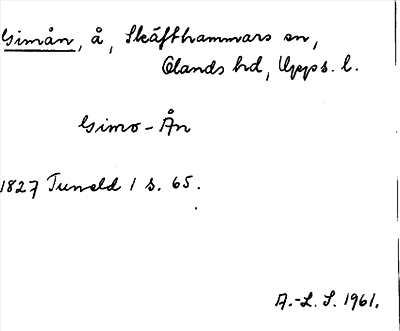 Gimån, å, Skäfthammars sn,
Olands hd, Upps. l.
Gimo-Ån
1827 Tuneld 1 s. 65.
A.-L. S. 1961.